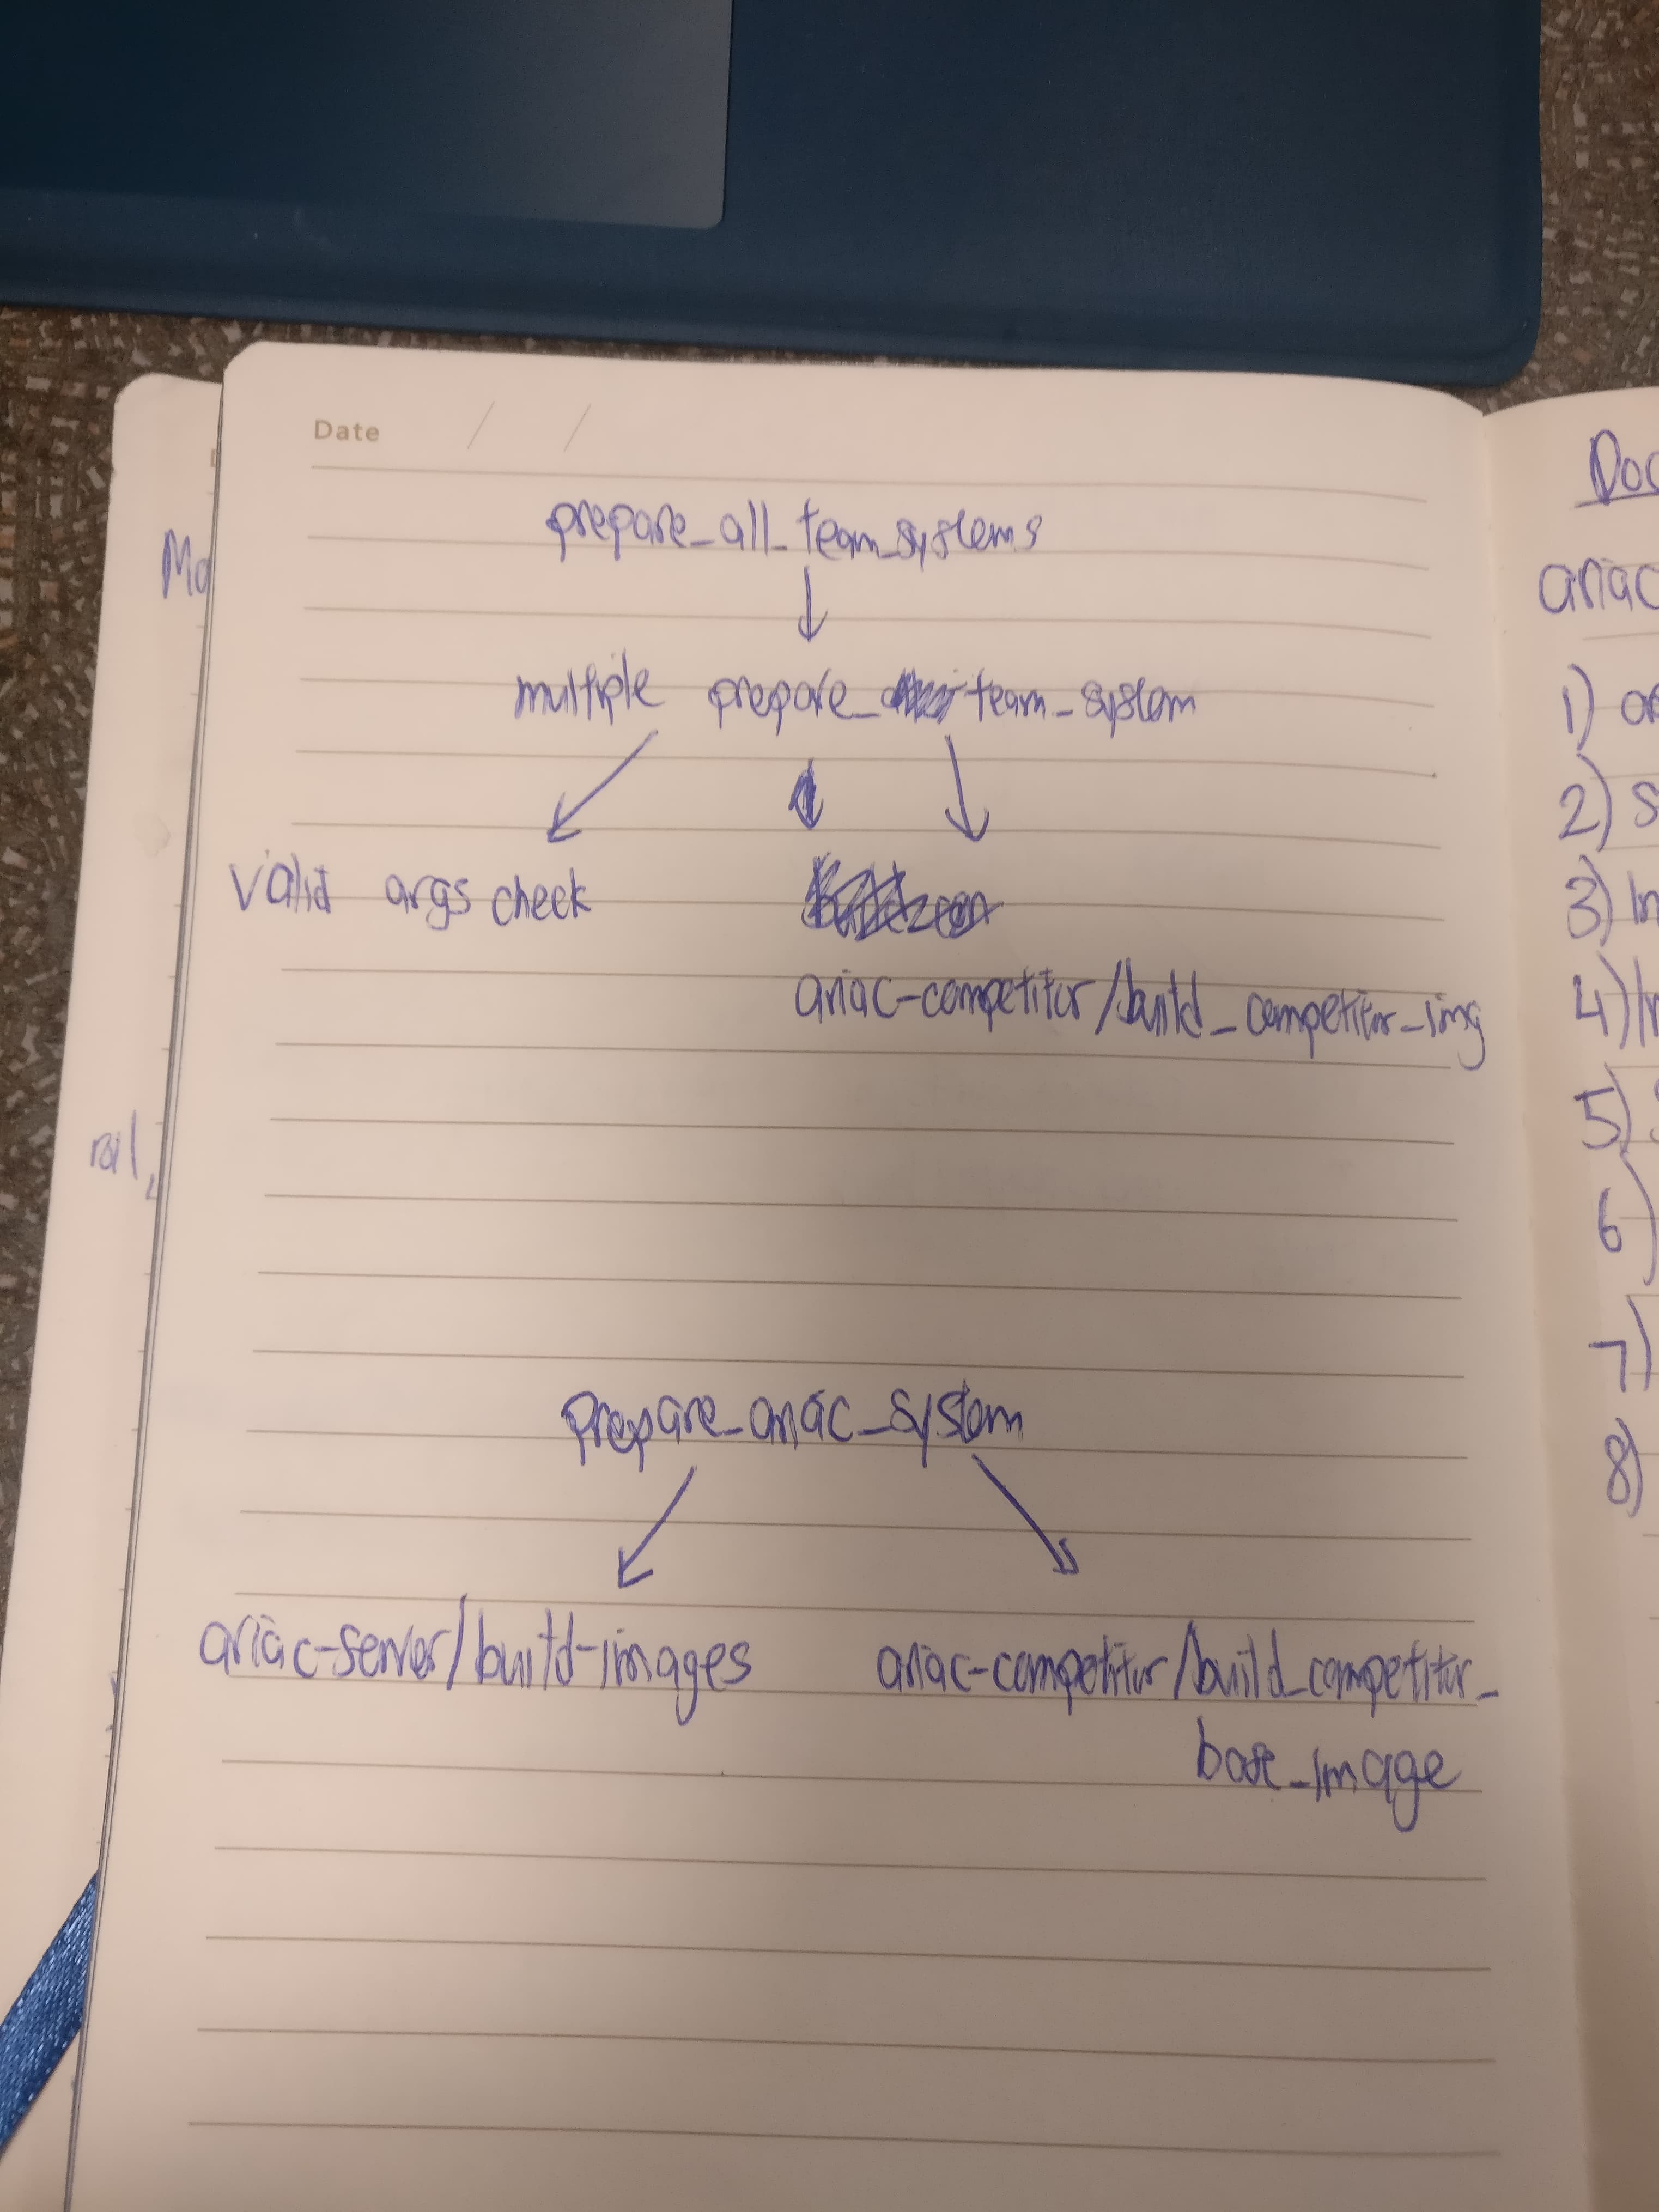 Date / /
prepare_all_team_systems
multiple prepare_team_system
valid args check
ariac-competitor/build_competitor_img
prepare_ariac_system
ariac-server/build-images ariac-competitor/build_competitor_
base_image
Mo
rail,
Doc
ariac
1) ar
2) S
3) In
4) In
5) S
6)
7)
8)